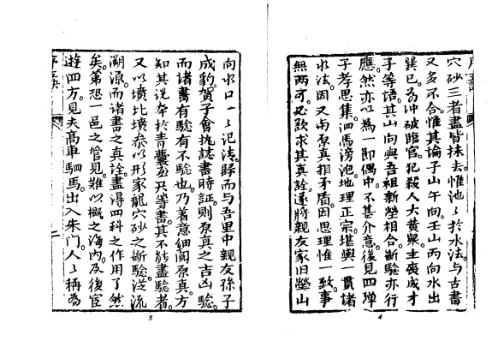 穴砂三者盡皆抹去惟泚〻於水法与古書
又多不合惟其論子山午向壬山丙向水出
巽巳為冲破臨官犯殺人大黃主喪成才
子等語其山向與吾祖新塋相合斷驗亦行
應然亦以為一節偶中不甚介意後見四彈
子孝思集泗馬滂池地理正宗堪輿一貫諸
水法因又與原真相矛盾因思理惟一致事
無兩可必欲求其真詮遂將親友家旧塋山
4
向水口一〻記清歸而与吾里中親友孫子
成豹賀子會執誌書時証則原真之吉凶驗
而諸書有驗有不驗也乃着意細閱原真方
知其说本於青囊只等書其不能盡驗者
又以墳比墳泰以形家龍穴砂之斷驗逆流
溯源而諸書之真詮盡得四科之作用了然
矣第恐一邑之管見難以概之海内及後宦
遊四方見夫高車駟馬出入朱門人〻稱為
5